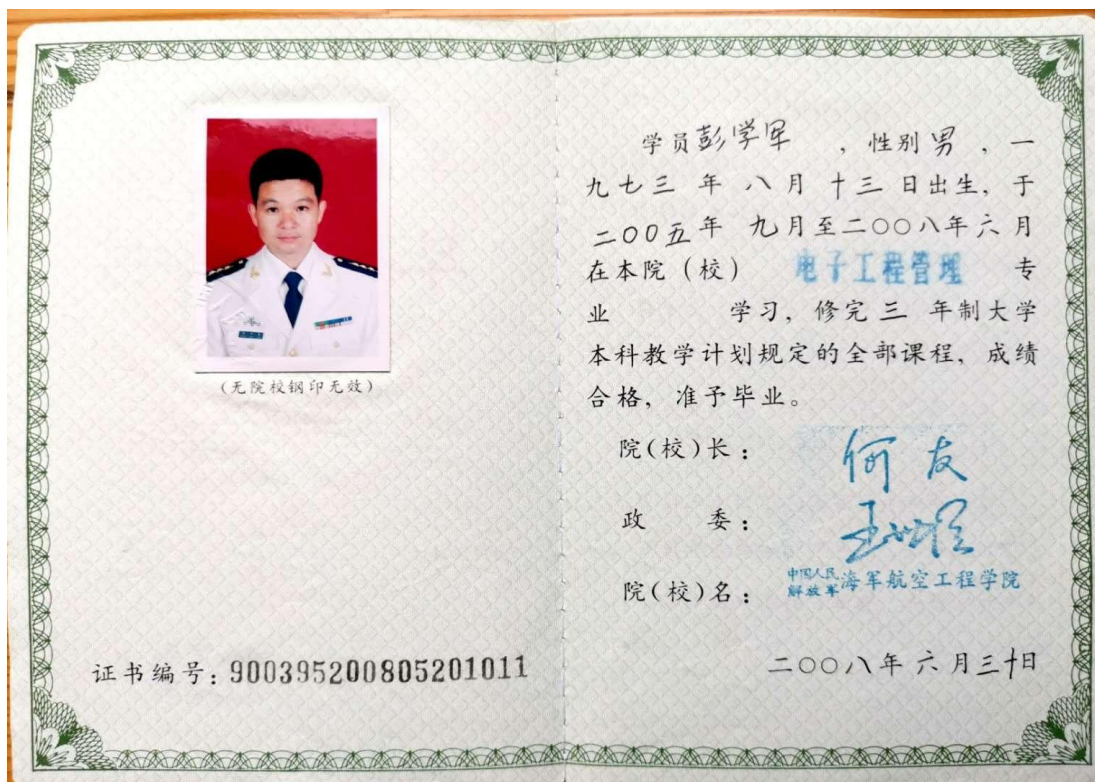 (无院校钢印无效)
证书编号：900395200805201011
学员彭学军，性别男，一
九七三年八月十三日出生，于
二〇〇五年九月至二〇〇八年六月
在本院（校）电子工程管理专
业学习，修完三年制大学
本科教学计划规定的全部课程，成绩
合格，准予毕业。
院(校)长：何友
政委：
院(校)名：中国人民解放军海军航空工程学院
二〇〇八年六月三十日